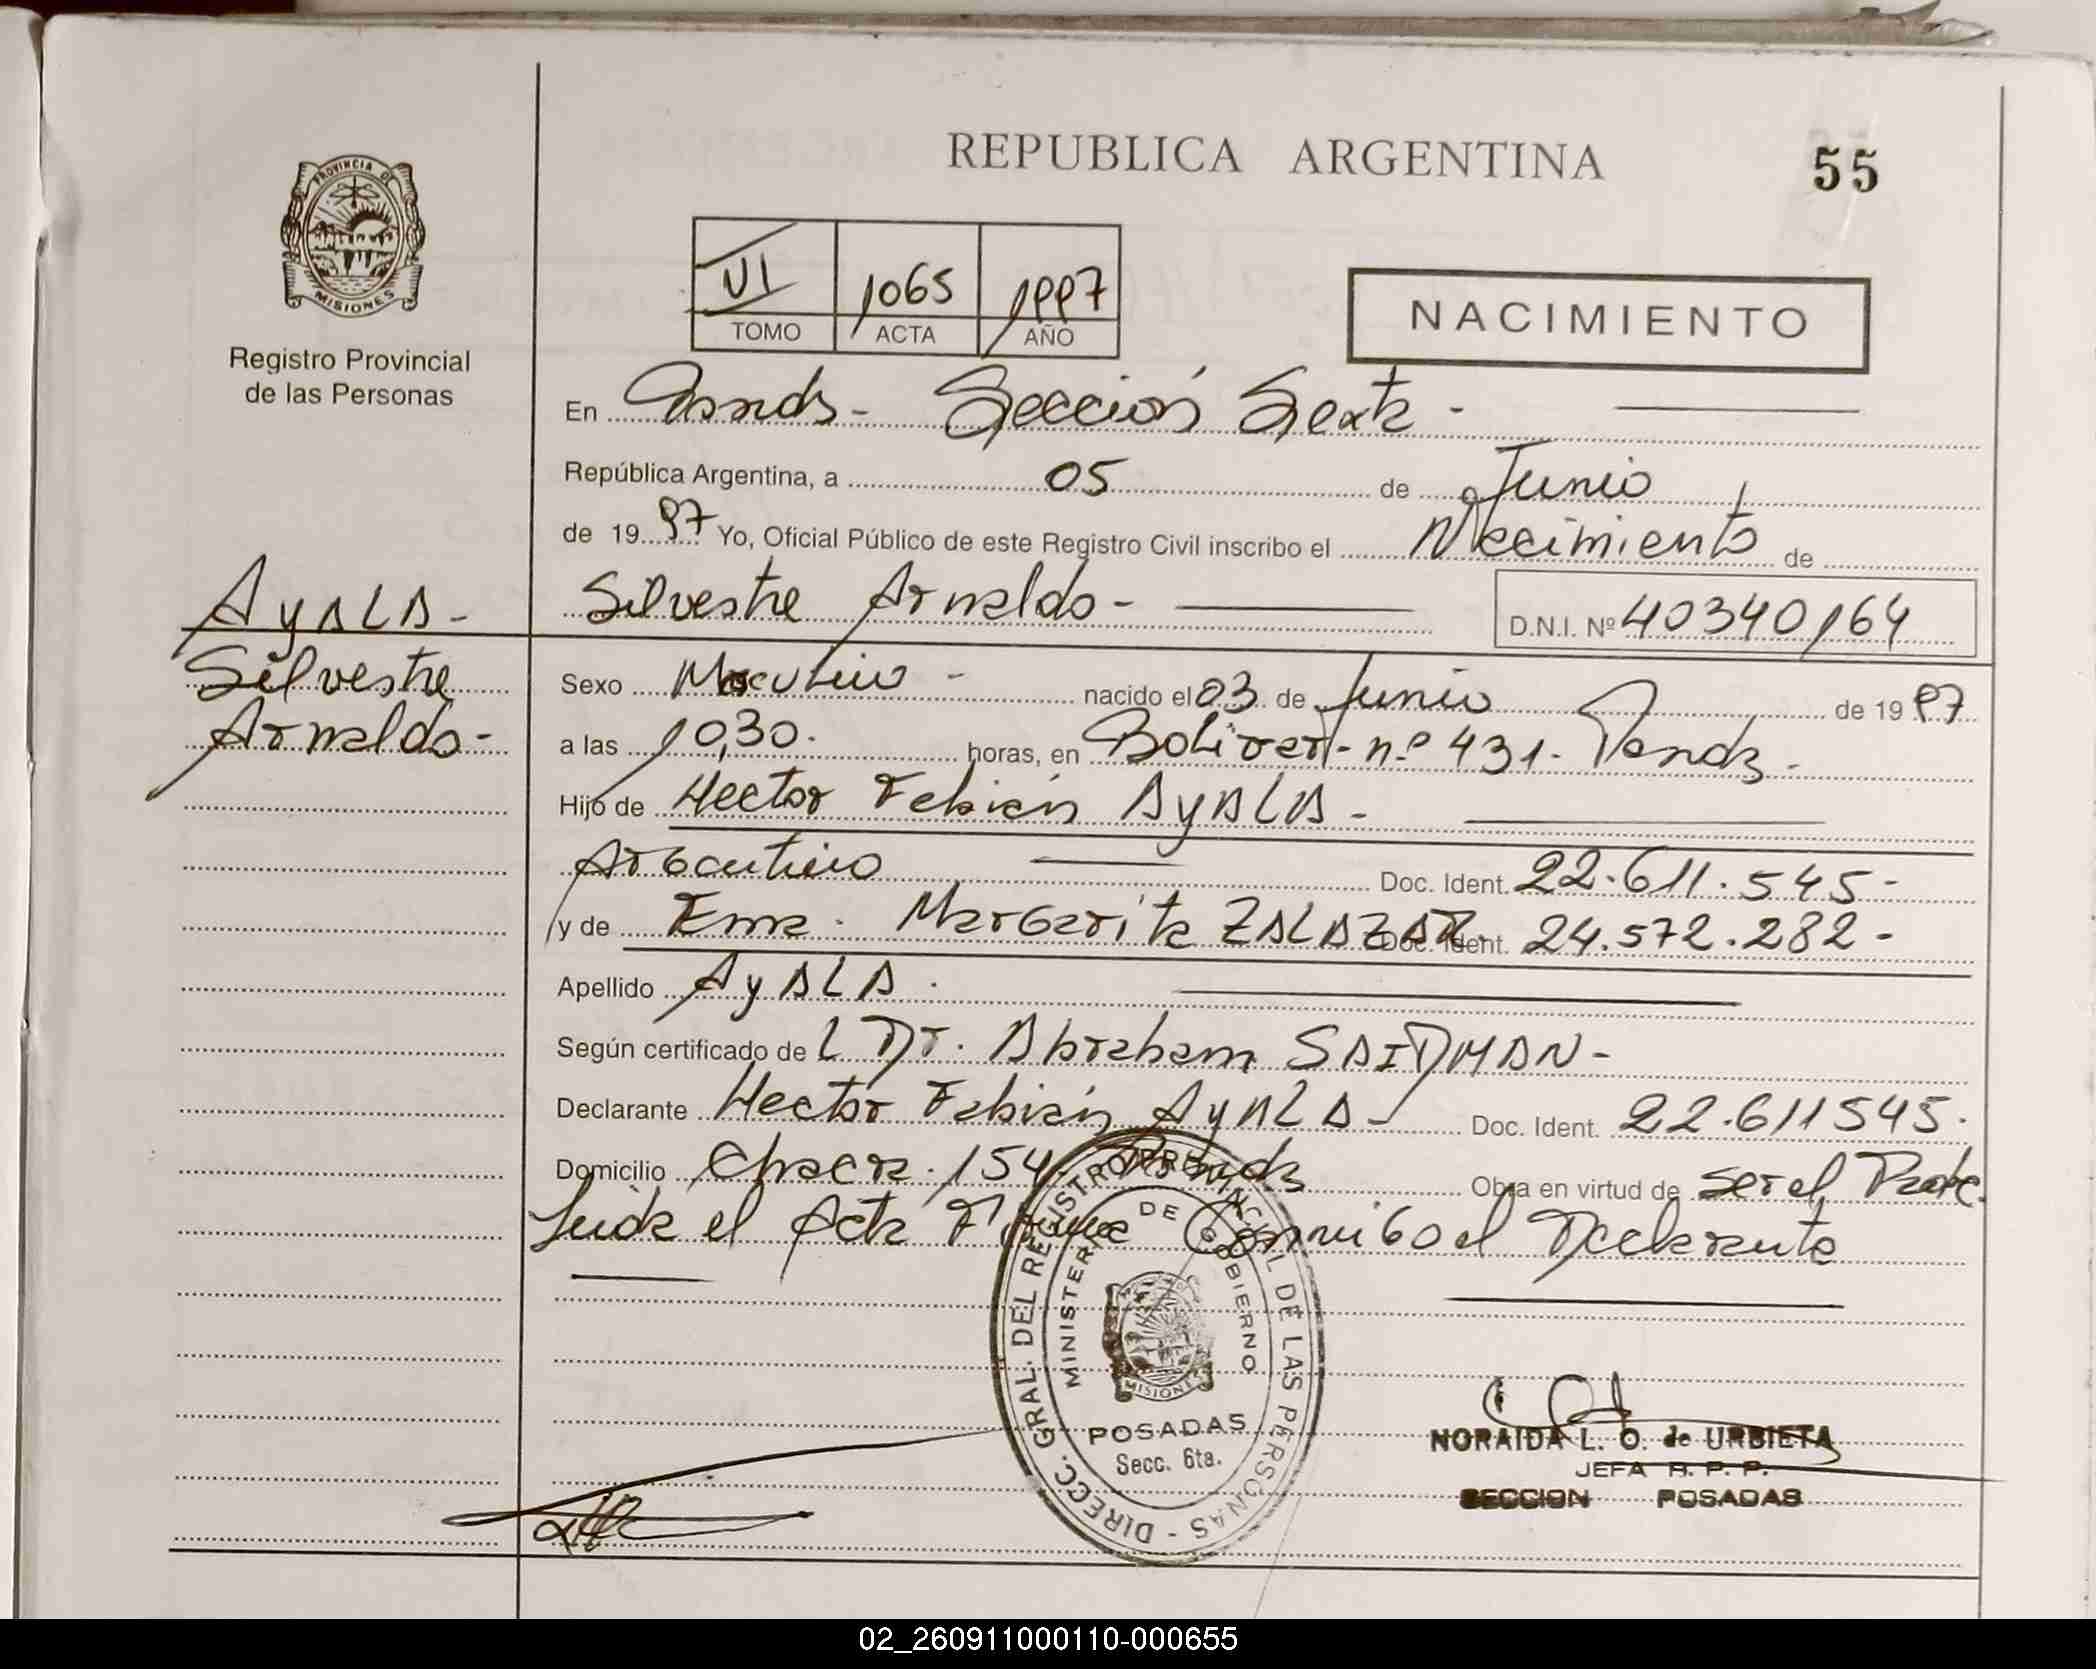 REPUBLICA ARGENTINA
55
PROVINCIA DE
MISIONES
Registro Provincial
de las Personas
VI 1065 1997
TOMO ACTA AÑO
NACIMIENTO
En Posadas - Sección Sexta -
República Argentina, a 05 de Junio
de 1997 Yo, Oficial Público de este Registro Civil inscribo el Nacimiento de
Silvestre Arnaldo -
D.N.I. Nº 40340164
AyALA -
Silvestre
Arnaldo -
Sexo Masculino - nacido el 03 de Junio de 1997
a las 10,30. horas, en Bolivar - nº 431. Posadas -
Hijo de Hector Fabián AyALA -
Argentino Doc. Ident. 22.611.545 -
y de Ema. Margarita ZALAZAR. Doc. Ident. 24.572.282 -
Apellido AyALA.
Según certificado del Dr. Abraham SAIDMAN -
Declarante Hector Fabián AyALA - Doc. Ident. 22.611545.
Domicilio Chacra. 154 - Posadas Obra en virtud de ser el Padre.
Leida el Acta Firma Conmigo el Declarante
DIRECC. GRAL. DEL REGISTRO PROVINCIAL DE LAS PERSONAS -
MINISTERIO DE GOBIERNO
MISIONES
POSADAS
Secc. 6ta.
NORAIDA L. O. de URBIETA
JEFA R. P. P.
SECCION POSADAS
02_260911000110-000655